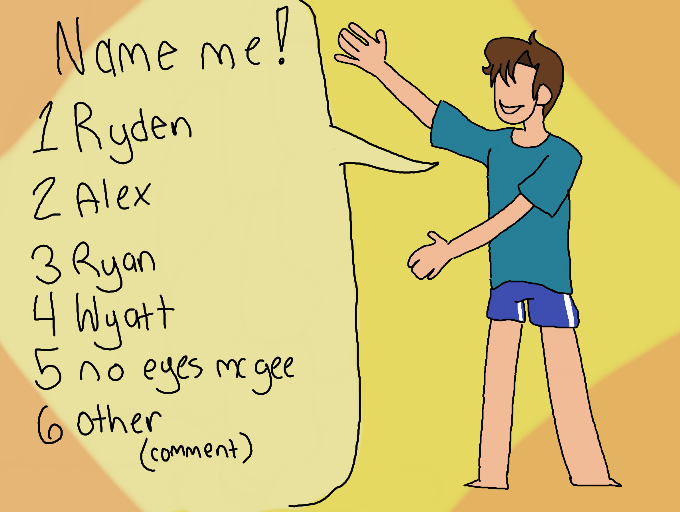 Name me!
1 Ryden
2 Alex
3 Ryan
4 Wyatt
5 no eyes mcgee
6 other
(comment)